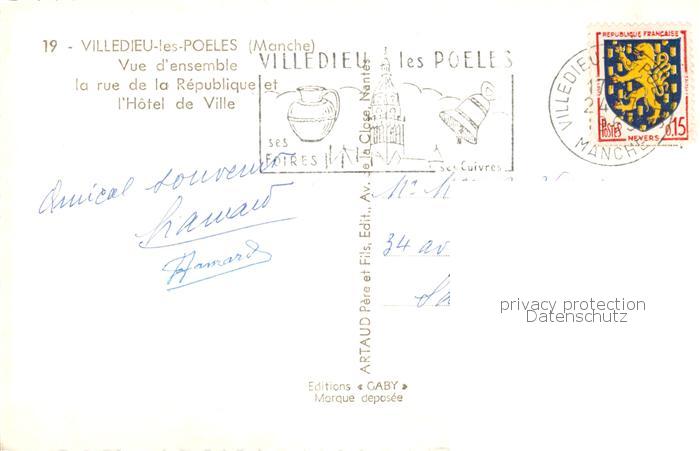 19 - VILLEDIEU-les-POELES (Manche)
Vue d'ensemble
la rue de la République et
l'Hôtel de Ville
VILLEDIEU les POELES
ses
FOIRES
ses Cuivres
REPUBLIQUE FRANÇAISE
POSTES
0,15
NEVERS
VILLEDIEU
17
24
MANCHE
Amical souvenir
Hamard
34 av
ARTAUD Père et Fils, Edit., Av. de la Close, Nantes
Editions « GABY »
Marque deposée
privacy protection
Datenschutz